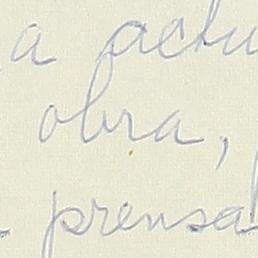 a actu
obra,
prensa